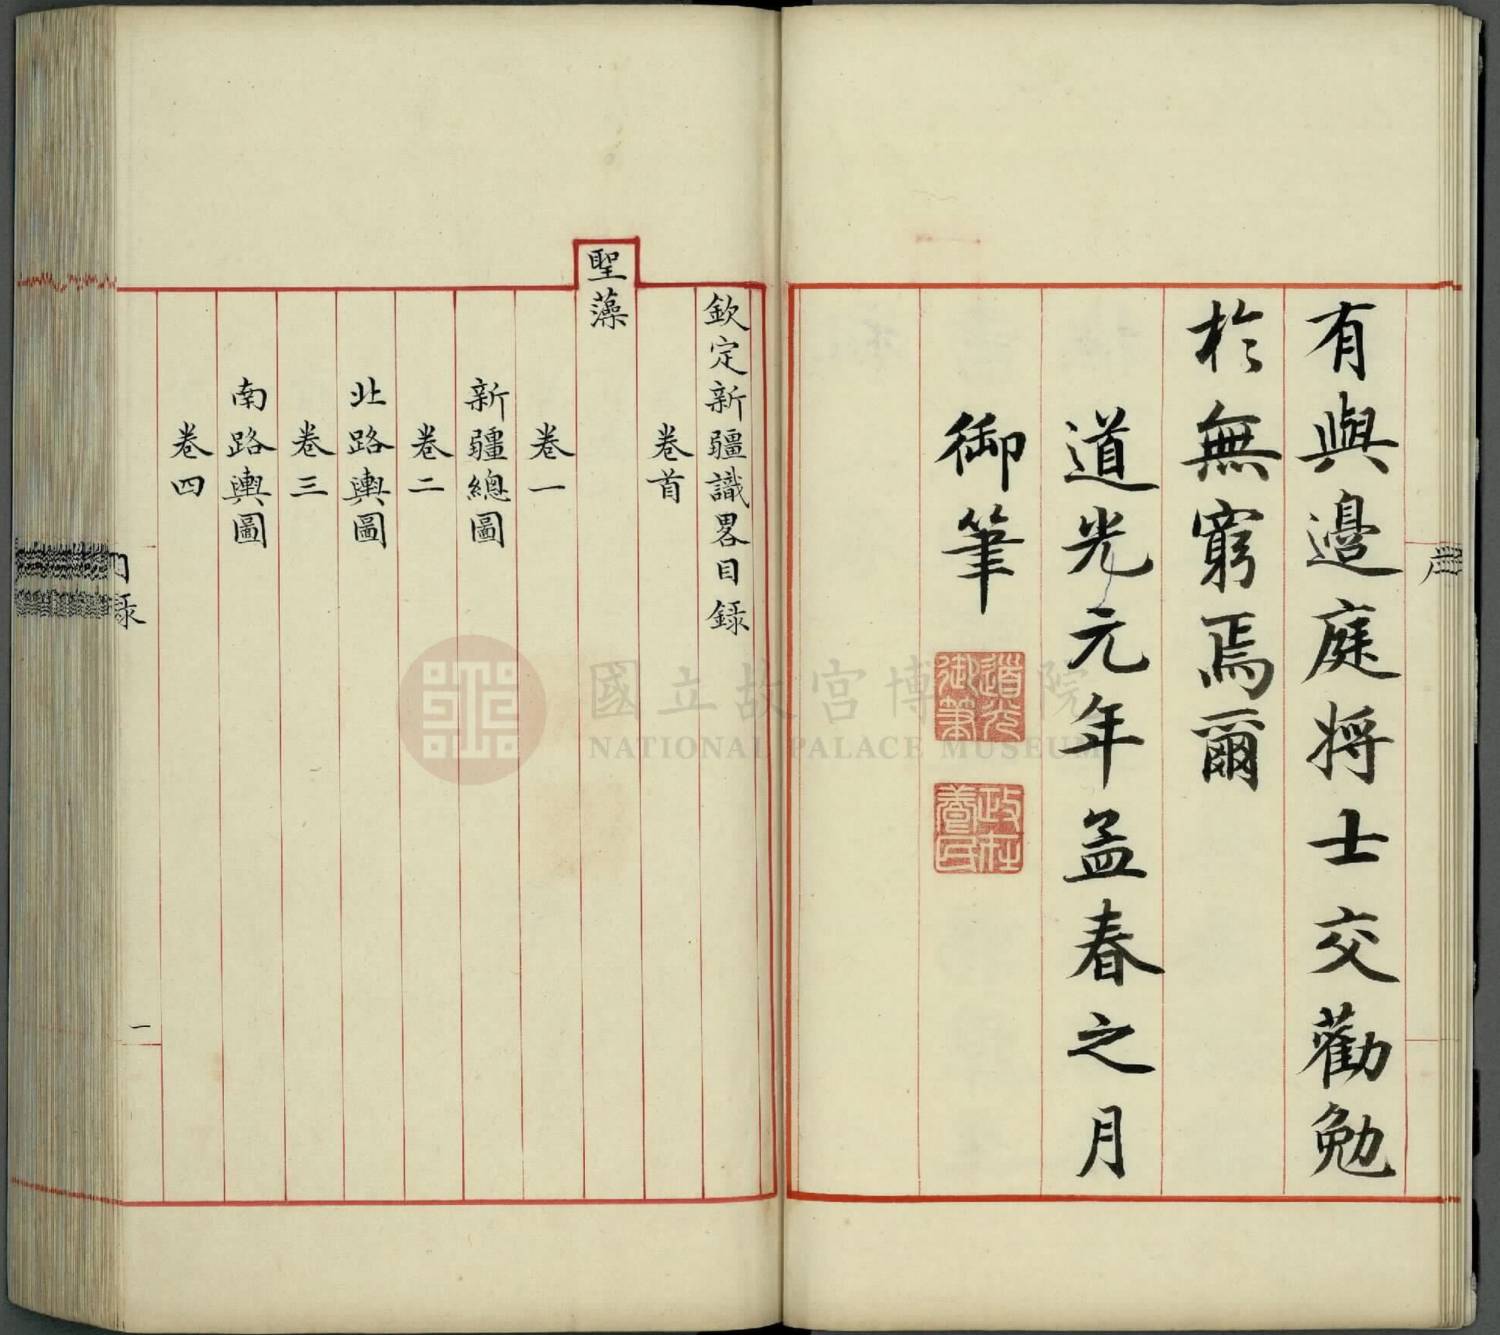 有與邊庭將士交勸勉
於無窮焉爾
道光元年孟春之月
御筆
道光御筆
政在養民
欽定新疆識畧目錄
卷首
聖藻
卷一
新疆總圖
卷二
北路輿圖
卷三
南路輿圖
卷四
一
國立故宮博物院
NATIONAL PALACE MUSEUM